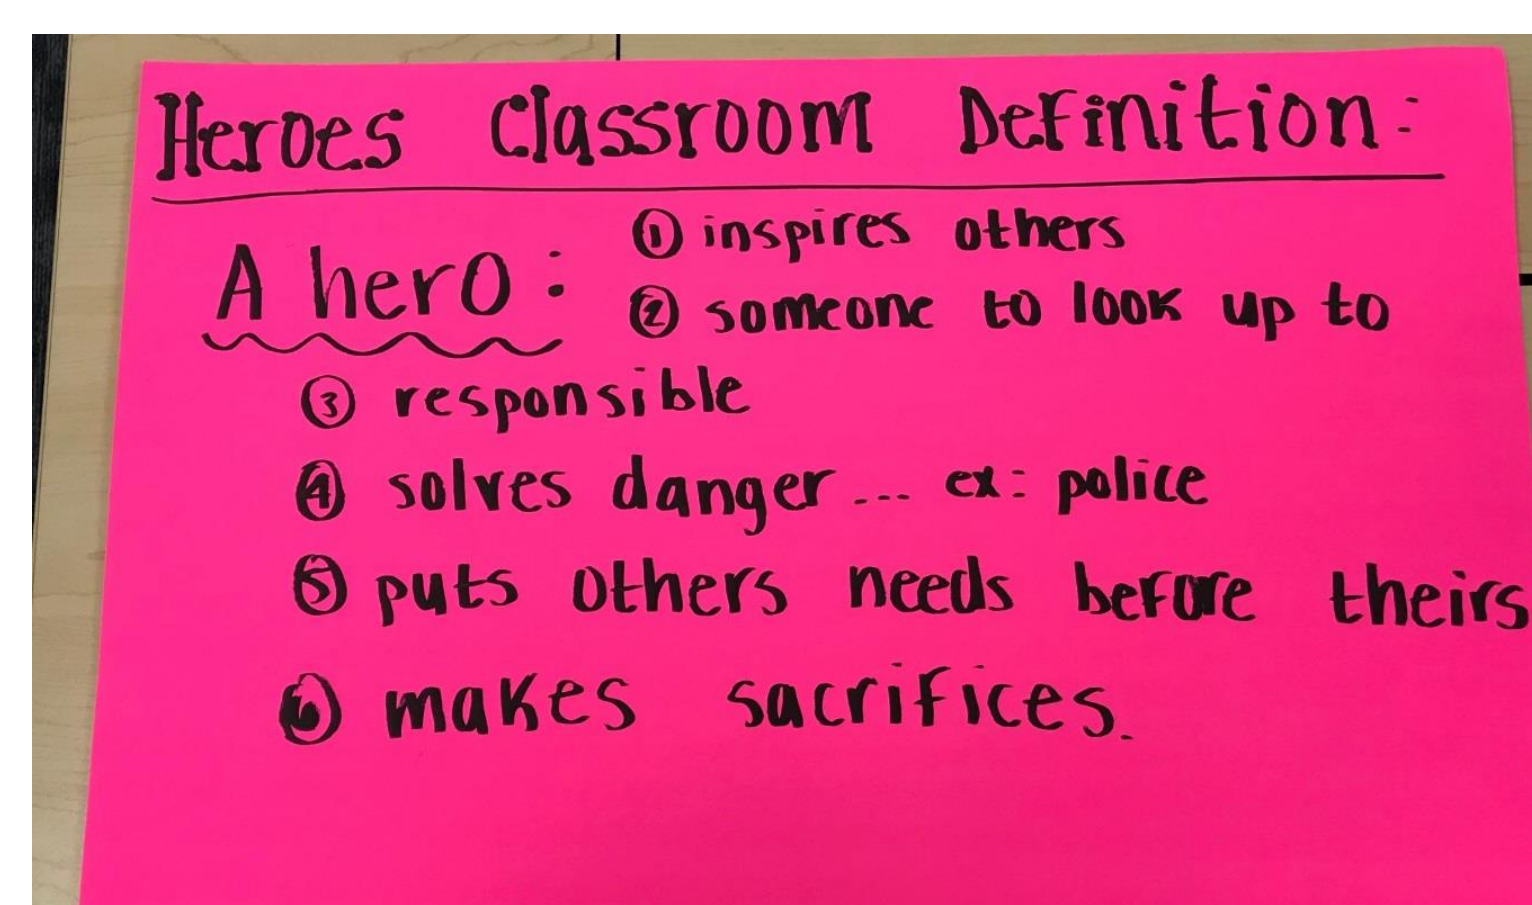 Heroes Classroom Definition:
A hero: ① inspires others
② someone to look up to
③ responsible
④ solves danger... ex: police
⑤ puts others needs before theirs
⑥ makes sacrifices.